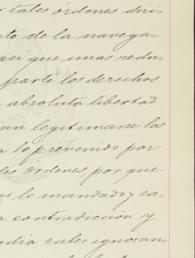 tales órdenes diri
to de la navega
asi que unas redu
parte los derechos
absoluta libertad
an legitimarse los
a lo prevenido por
les órdenes, por que
lo mandado y ca
a contradiccion y
udia caber ignoran